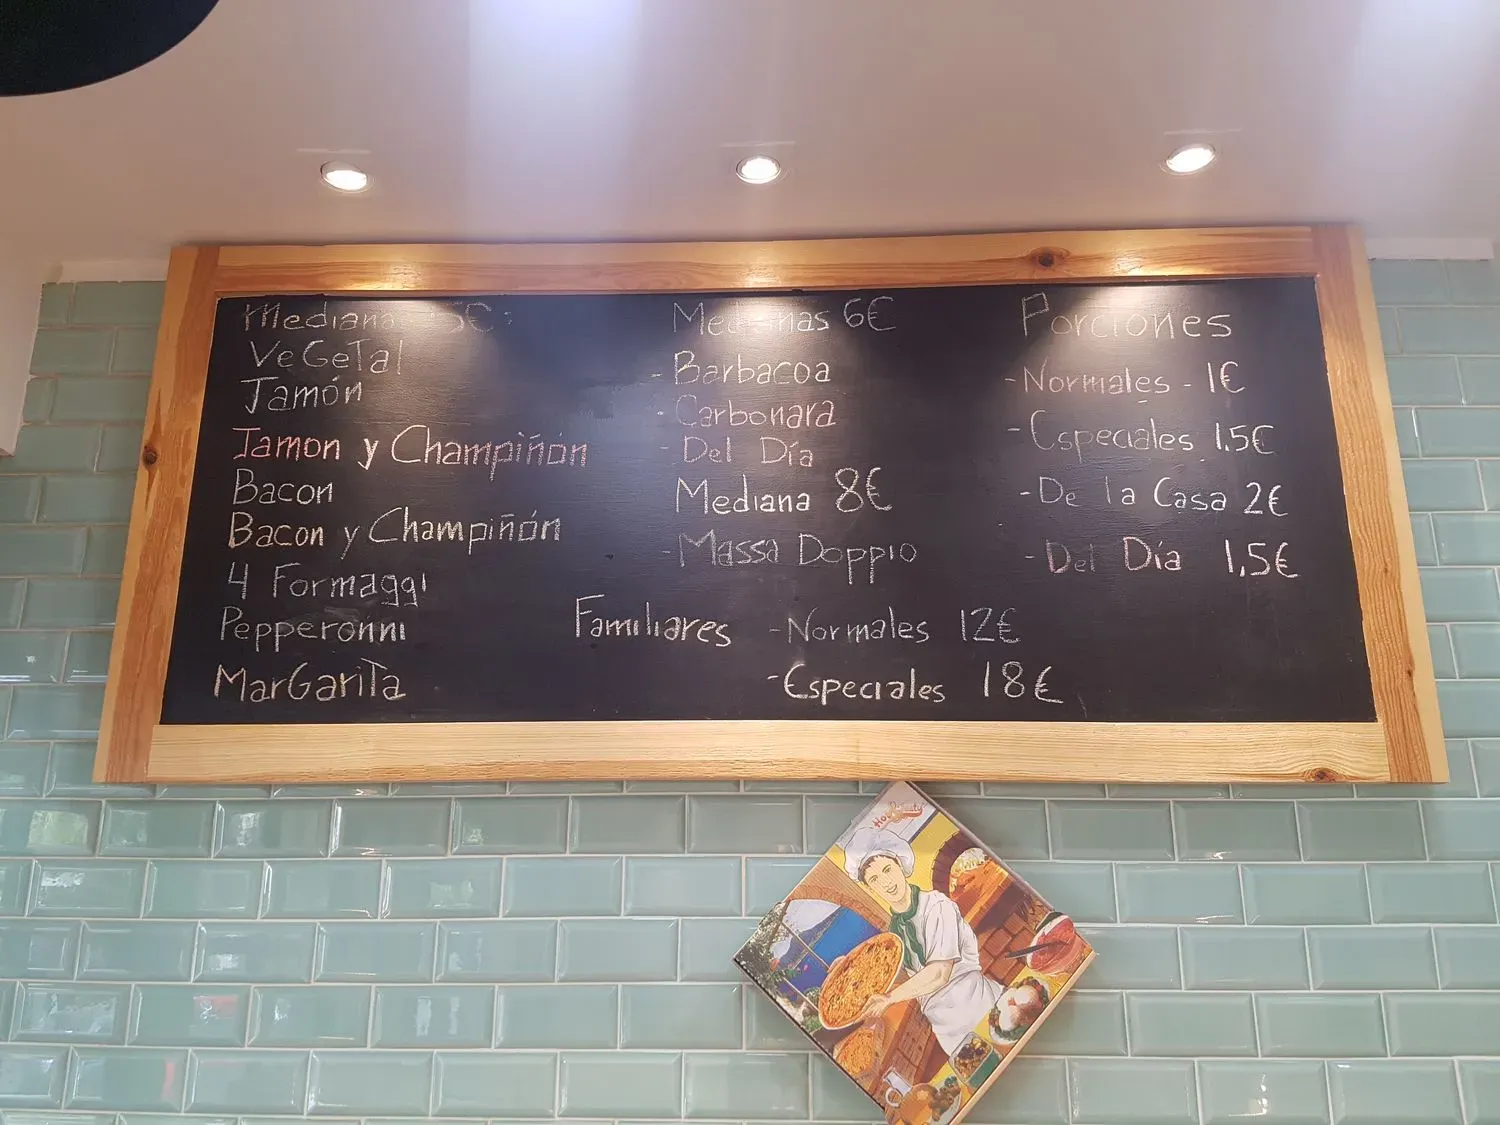 Mediana 5€
VeGeTal
Jamón
Jamon y Champiñón
Bacon
Bacon y Champiñón
4 Formaggi
Pepperonni
MarGariTa
Medianas 6€
- Barbacoa
- Carbonara
- Del Día
Mediana 8€
- Massa Doppio
Familiares - Normales 12€
- Especiales 18€
Porciones
- Normales - 1€
- Especiales 1.5€
- De la Casa 2€
- Del Día 1,5€